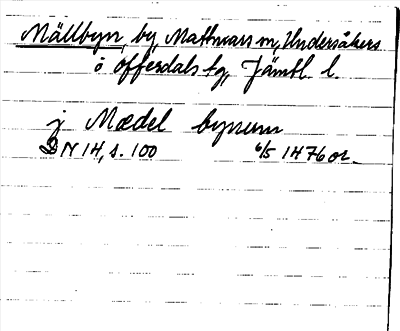 Mällbyn, by, Mattmars sn, Undersåkers
o Offerdals tg, Jämtl. l.
j Mædel bynum
DN 14, s. 100 6/5 1476 or.